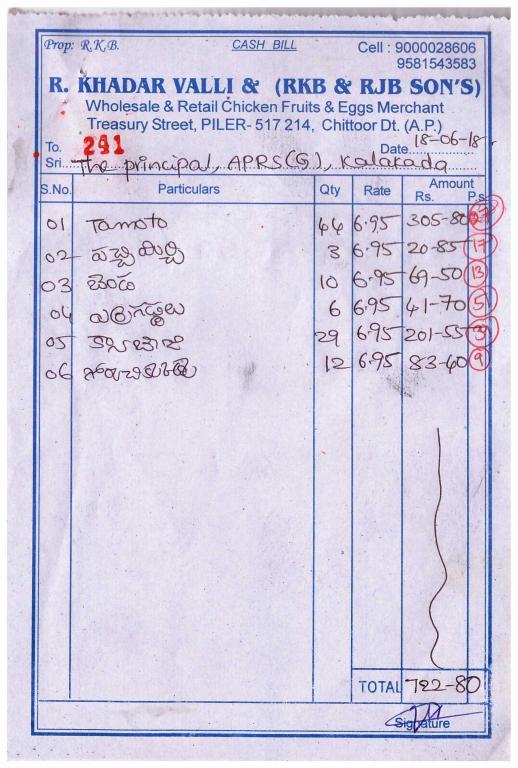 Prop: R.K.B. CASH BILL Cell : 9000028606
9581543583
R. KHADAR VALLI & (RKB & RJB SON'S)
Wholesale & Retail Chicken Fruits & Eggs Merchant
Treasury Street, PILER- 517 214, Chittoor Dt. (A.P.)
To. 291 Date 18-06-18
Sri The principal, APRS(G), Kalakada
S.No. Particulars Qty Rate Amount
Rs. P.s
01 Tamoto 44 6.95 305-80
02 పచ్చి మిర్చి 3 6.95 20-85 17
03 బెండ 10 6.95 69-50 13
04 ఎర్రగడ్డలు 6 6.95 41-70 51
05 29 6.95 201-55 3
06 గోరుచిక్కుడు 12 6.95 83-40 9
TOTAL 722-80
Signature